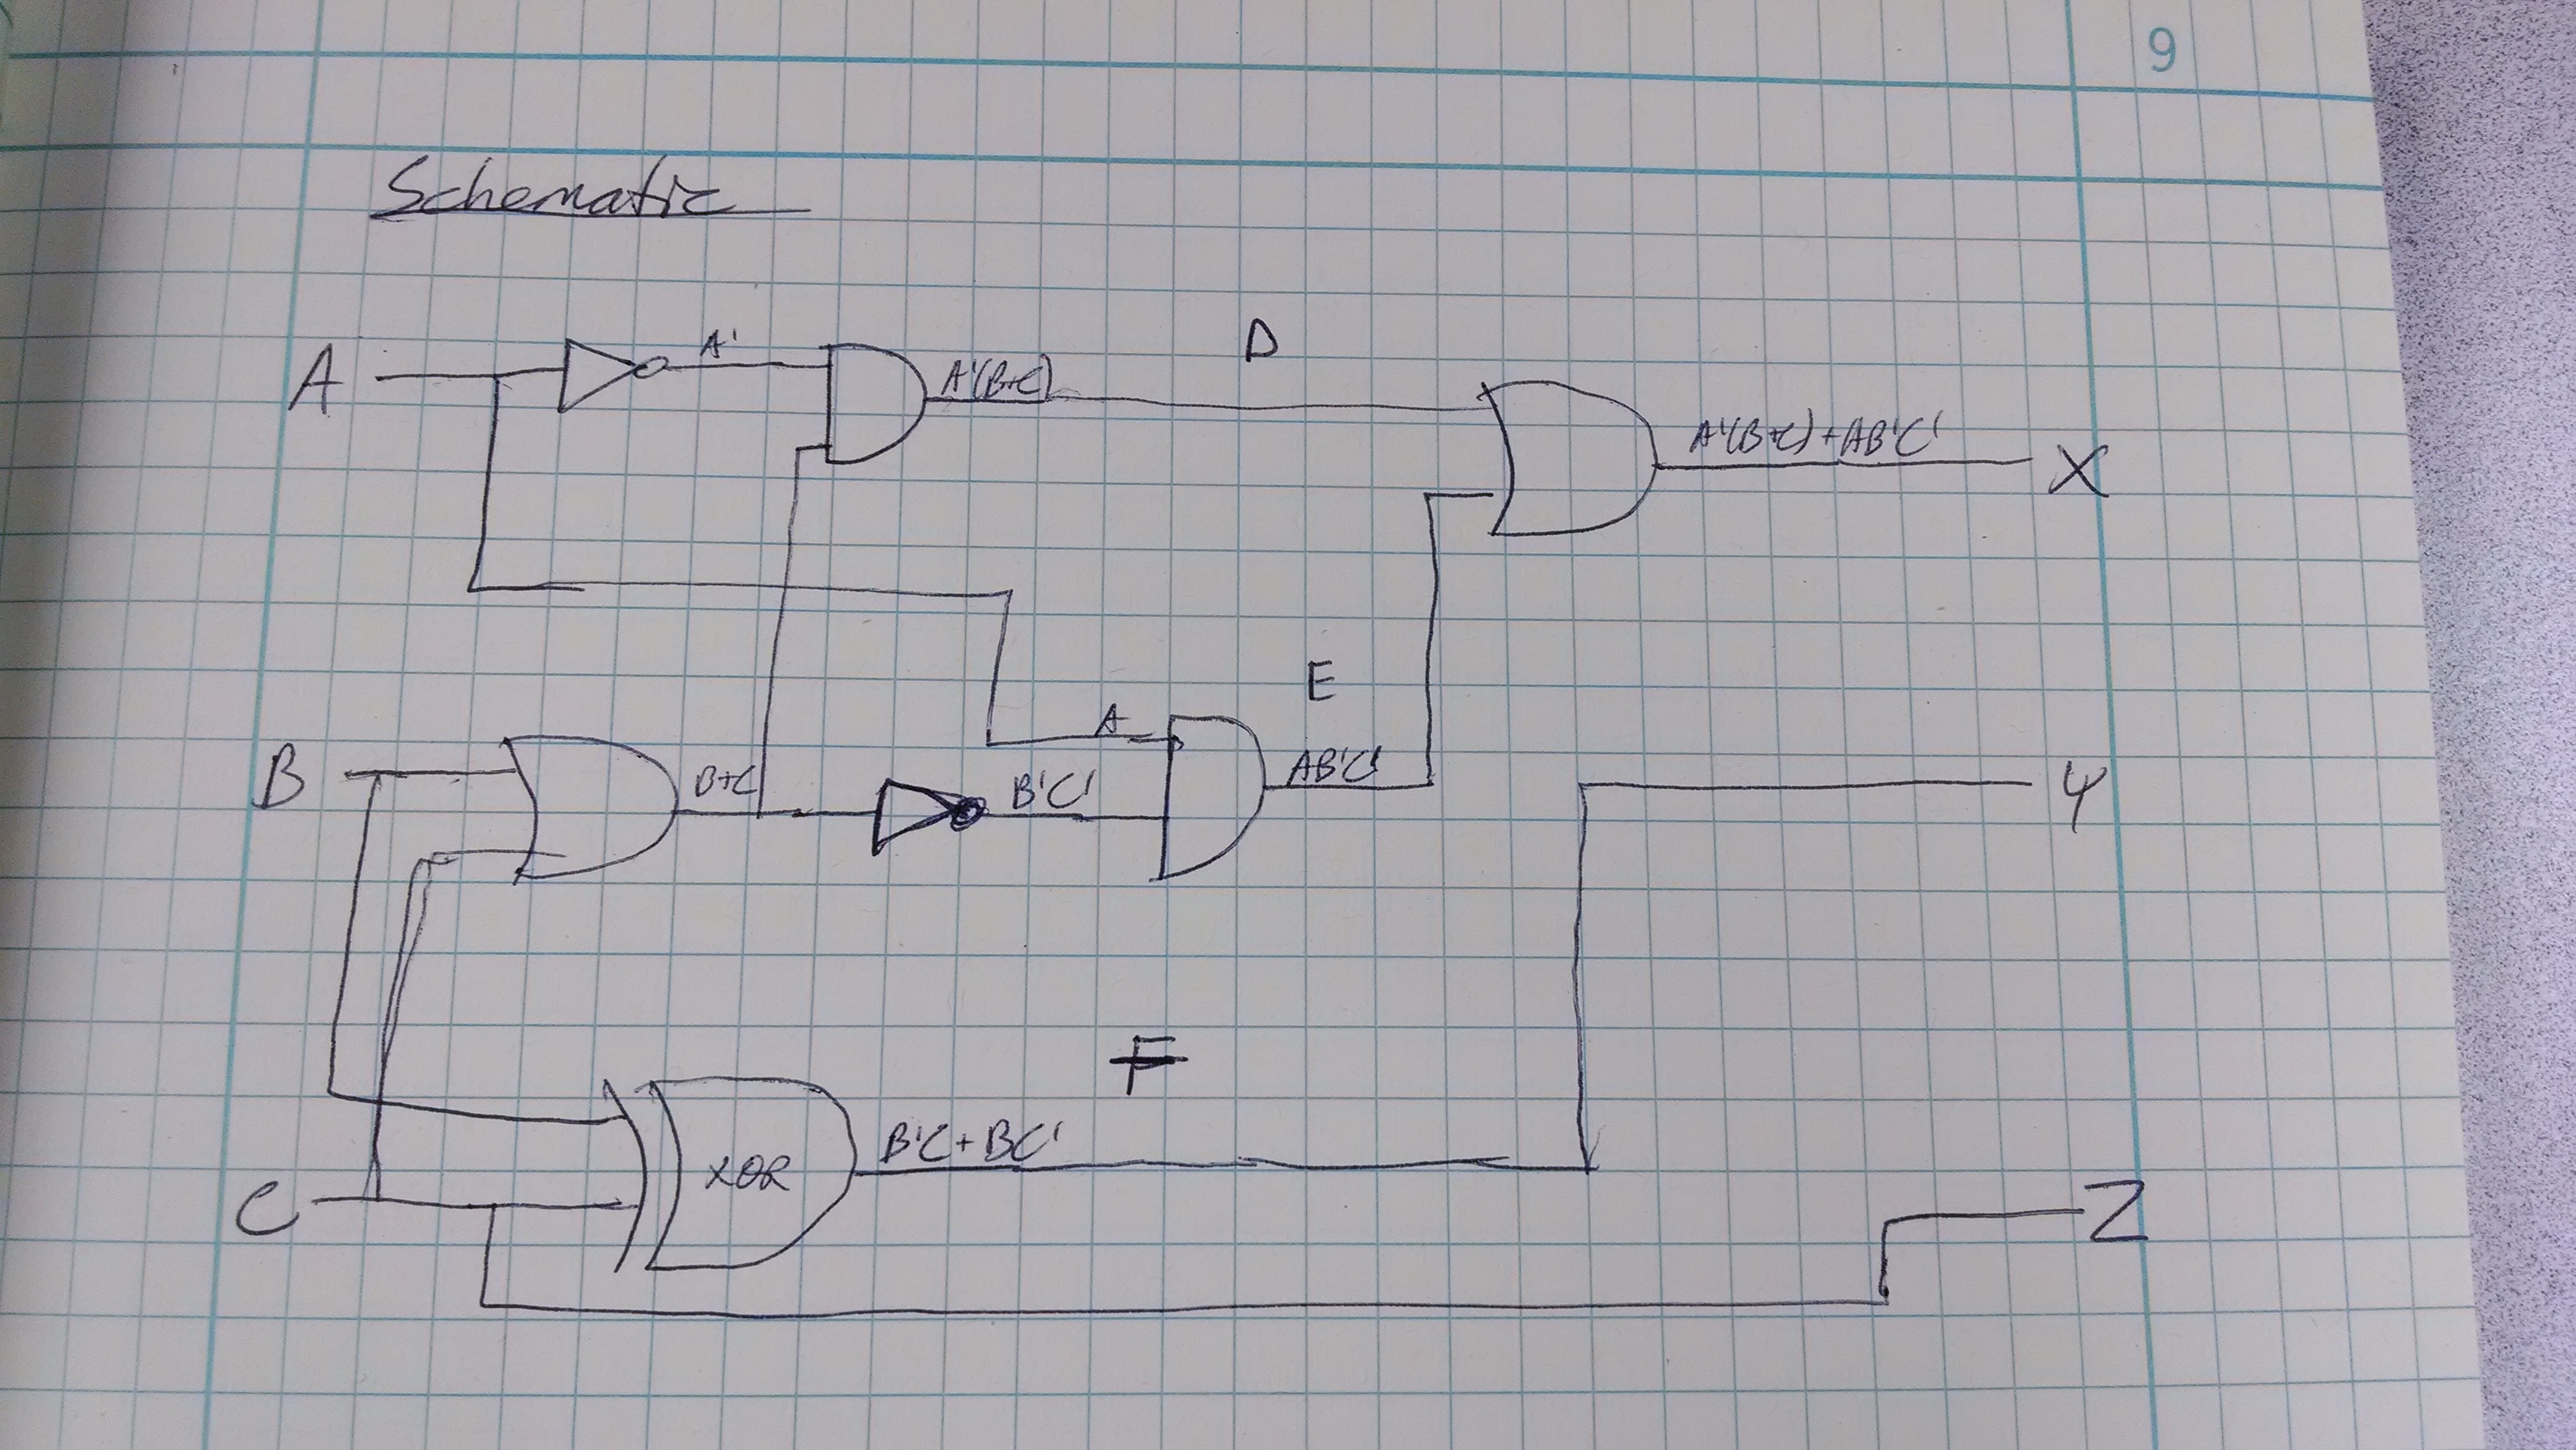 9
Schematic
A
A'
A'(B+C)
D
A'(B+C)+AB'C'
X
B
B+C
B'C'
A
E
AB'C'
Y
F
C
XOR
B'C+BC'
Z